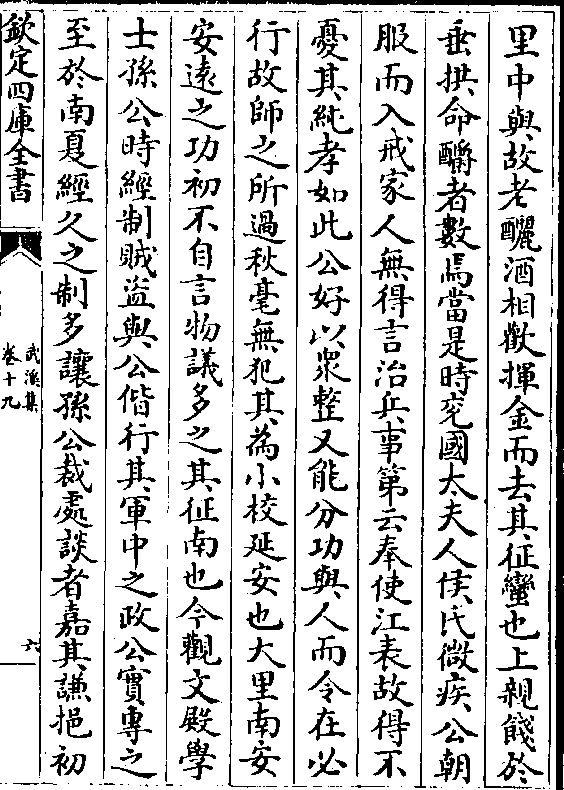 里中與故老釃酒相歡揮金而去其征蠻也上親餞於
垂拱命釂者數焉當是時兖國太夫人侯氏微疾公朝
服而入戒家人無得言治兵事第云奉使江表故得不
憂其純孝如此公好以衆整又能分功與人而令在必
行故師之所過秋毫無犯其為小校延安也大里南安
安遠之功初不自言物議多之其征南也今觀文殿學
士孫公時經制賊盜與公偕行其軍中之政公實專之
至於南夏經久之制多讓孫公裁處談者嘉其謙挹初
欽定四庫全書
武溪集
卷十九
六